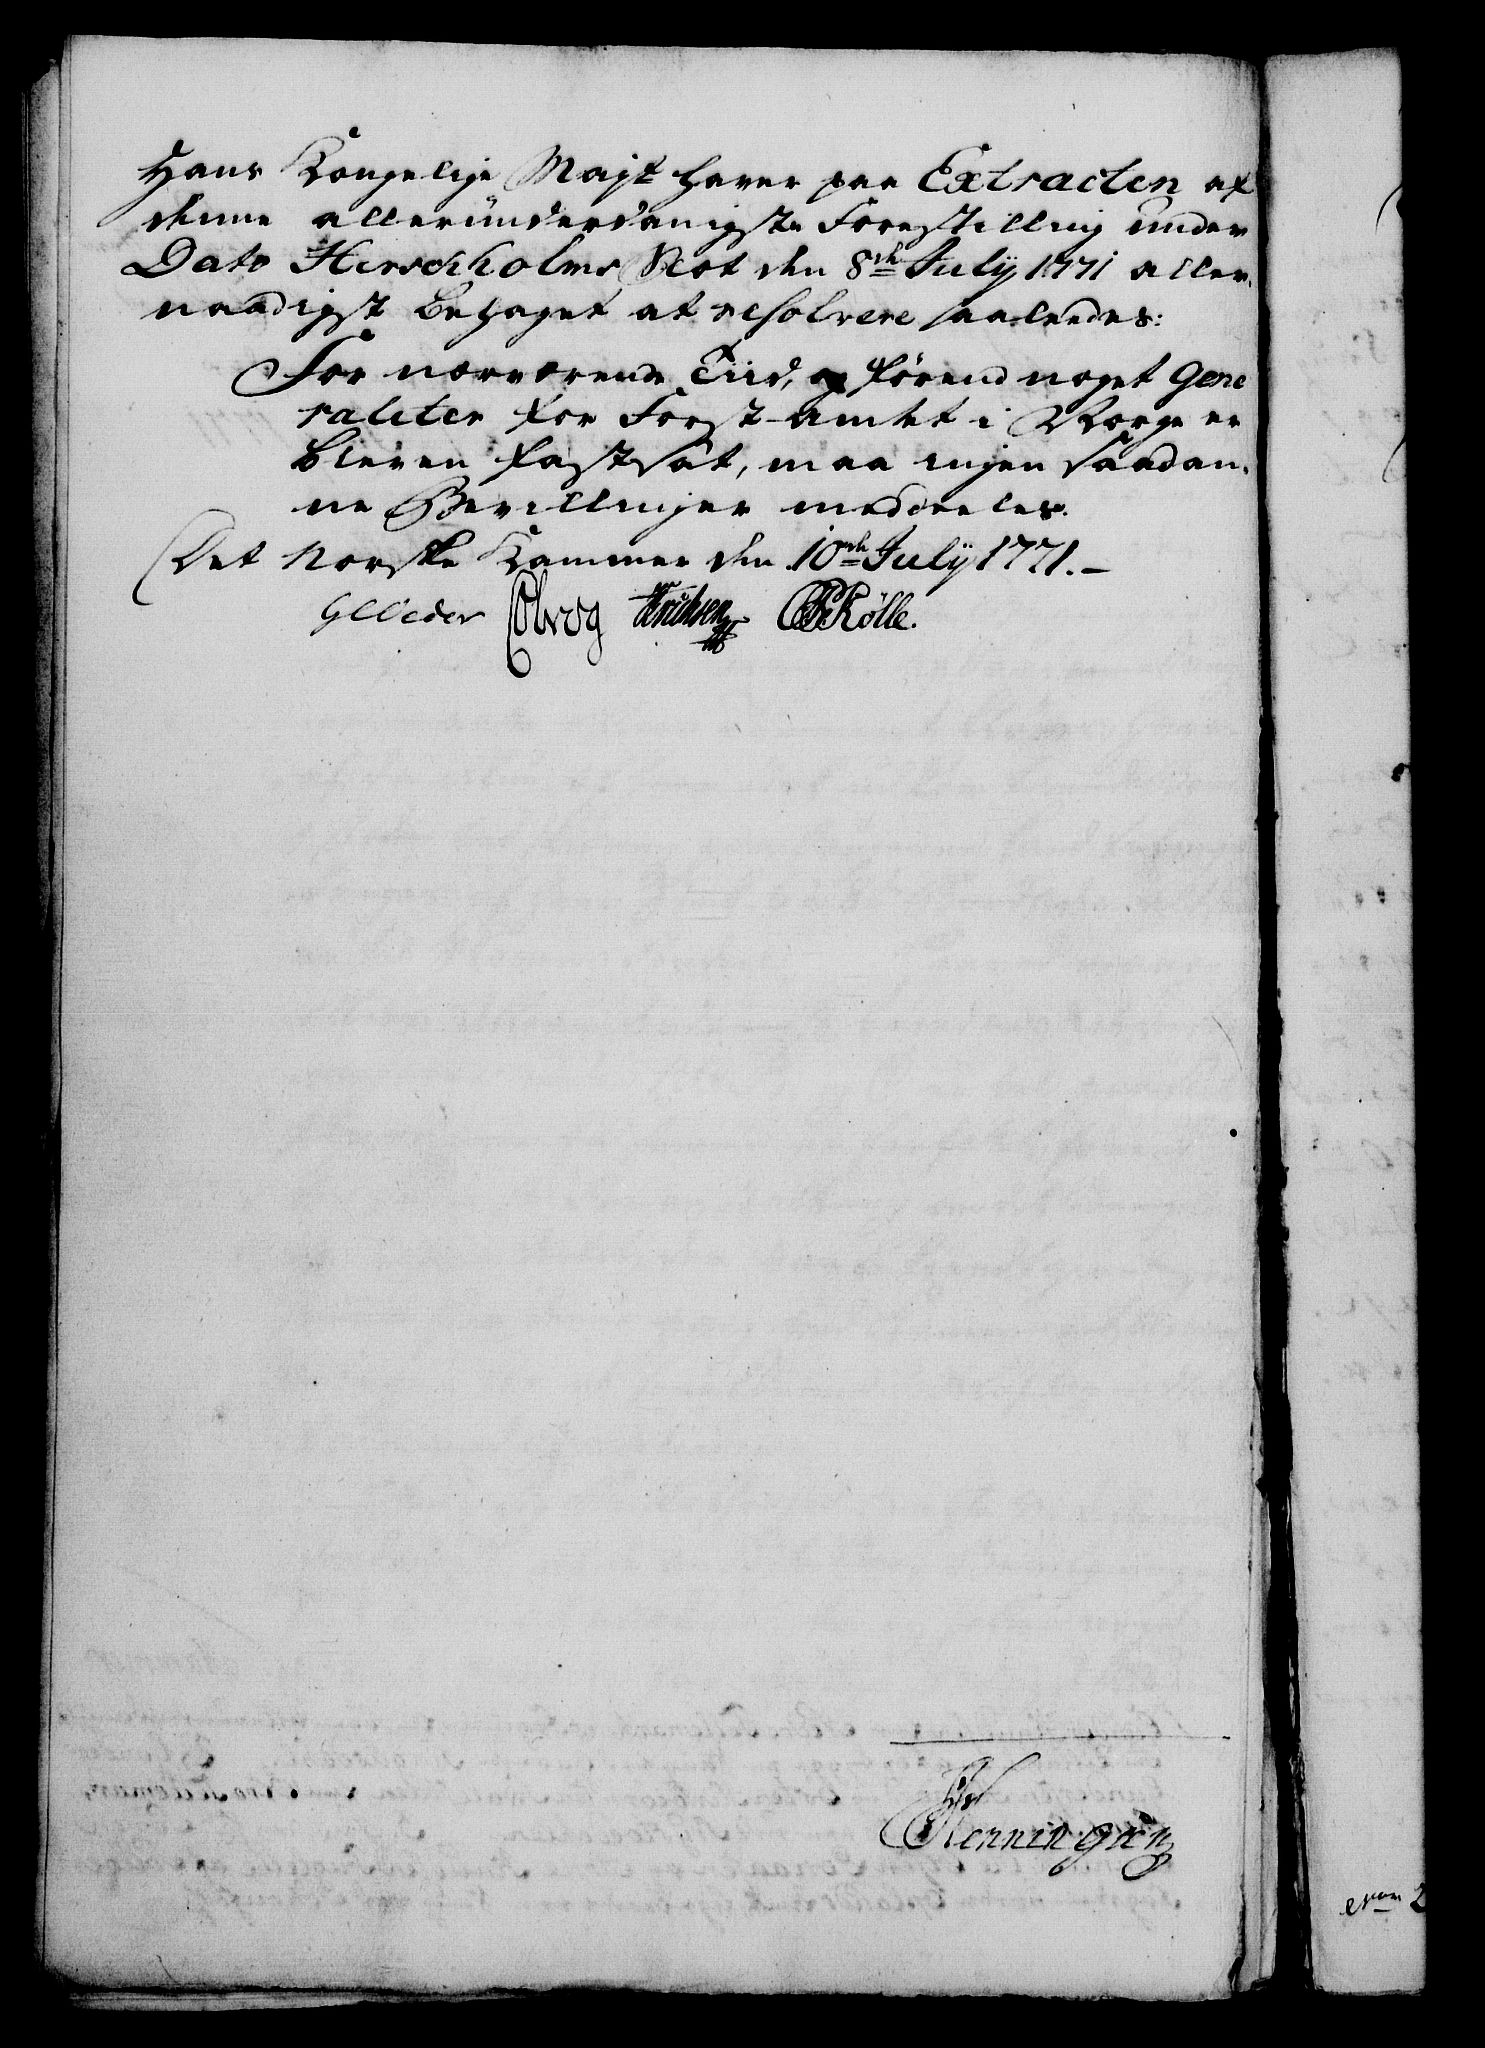 Hans Kongelige Mayt haver paa Extracten af
denne alleründerdanigste Forestilling under
Dato Hirschholms Slot den 8de July 1771 aller-
naadigst behaget at resolvere saaledes:
For nærværende Tiid, og förend noget Gene
raliter for Forst-amtet i Norge er
bleven fastsat, maa ingen saadan-
ne Bevillinger meddeeles.
Det Norske Kammer den 10de July 1771.-
Erichsen Rölle.
Henningsen